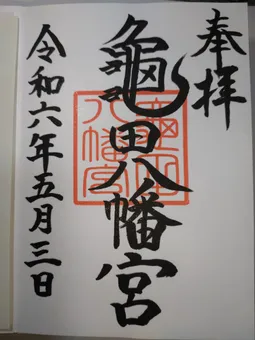 奉拝
龜田八幡宮
龜田八幡宮
令和六年五月三日